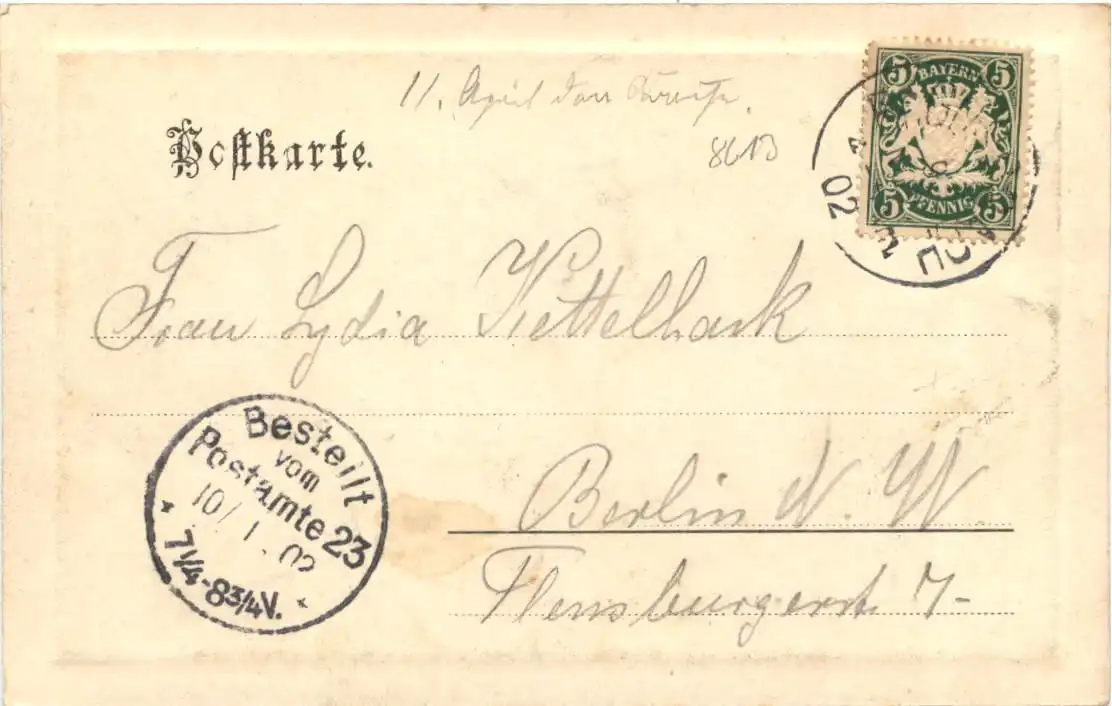 11. April
8613
Postkarte.
5 BAYERN 5
5 PFENNIG 5
02
Frau Lydia Kettelhack
Berlin N. W.
Flensburgerstr. 7-
Bestellt
vom
Postamte 23
10/1.02
7 1/4-8 3/4 V.